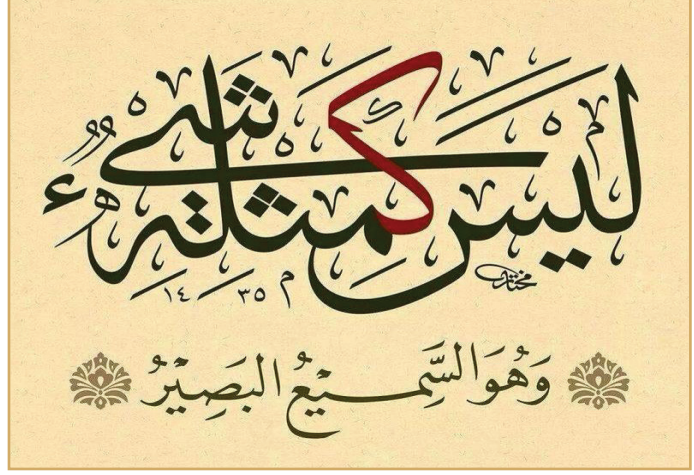 لَيْسَ كَمِثْلِهِ شَيْءٌ
مختار
١٤٣٥
وَهُوَ السَّمِيْعُ البَصِيْرُ